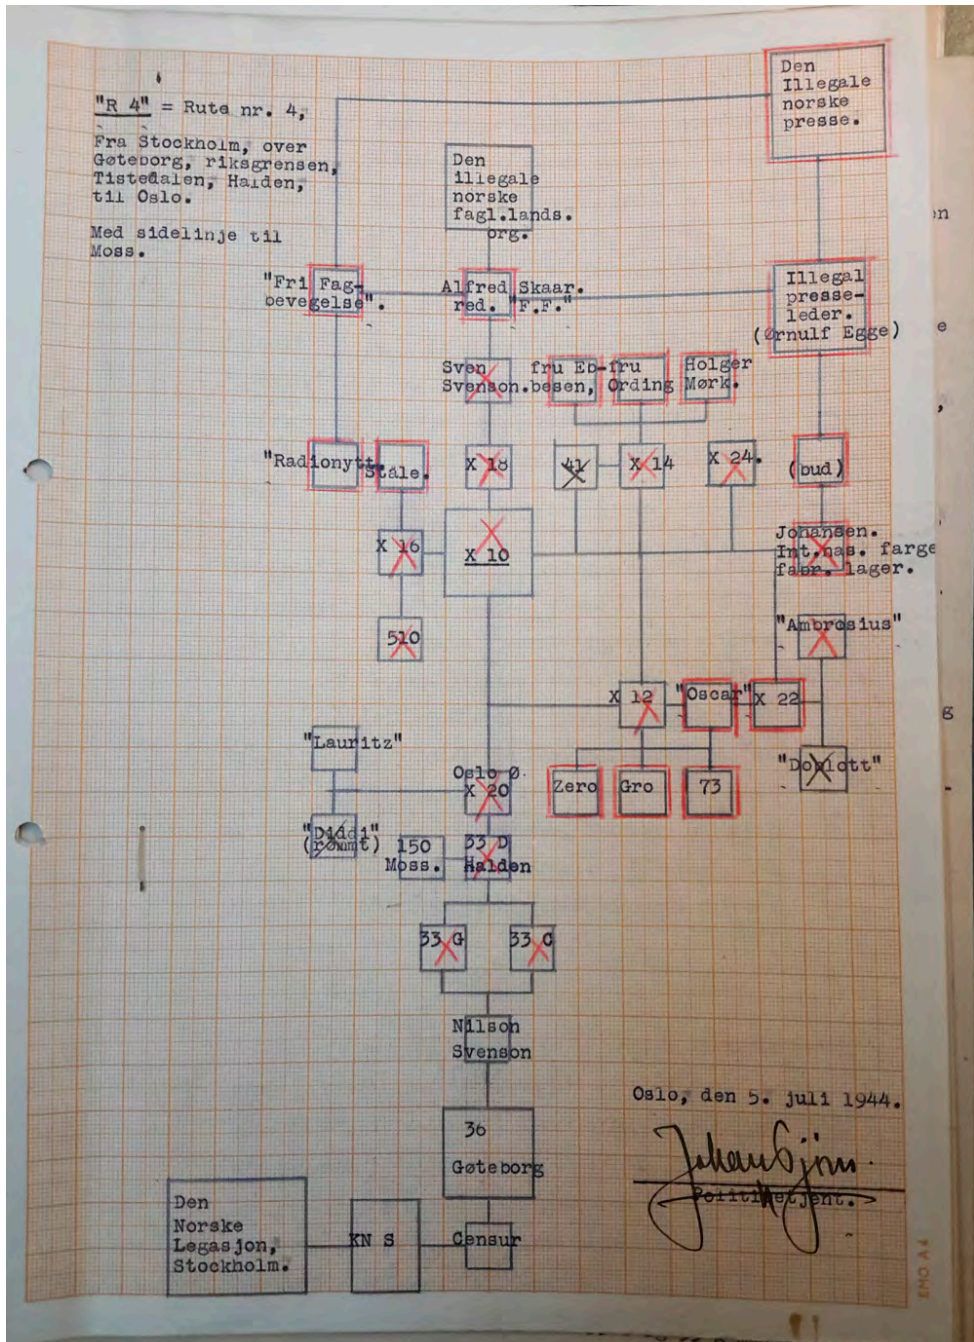 "R 4" = Rute nr. 4,
Fra Stockholm, over
Gøteborg, riksgrensen,
Tistedalen, Halden,
til Oslo.
Med sidelinje til
Moss.
Den
Illegale
norske
presse.
Den
illegale
norske
fagl.lands.
org.
"Fri Fag-
bevegelse".
Alfred Skaar.
red. "F.F."
Illegal
presse-
leder.
(Ørnulf Egge)
Sven
Svenson.
fru Eb-
besen,
fru
Ording
Holger
Mørk.
"Radionytt"
Ståle.
X 18
41
X 14
X 24.
(bud)
X 16
X 10
Johansen.
Int.nas. farge
fabr. lager.
510
"Ambrosius"
X 12
"Oscar"
X 22
"Lauritz"
Oslo Ø.
X 20
Zero
Gro
73
"Diddi"
(rømt)
150
Moss.
33 D
Halden
33 G
33 C
Nilson
Svenson
36
Gøteborg
Den
Norske
Legasjon,
Stockholm.
KN S
Censur
Oslo, den 5. juli 1944.
Politibetjent.
EMO A 4